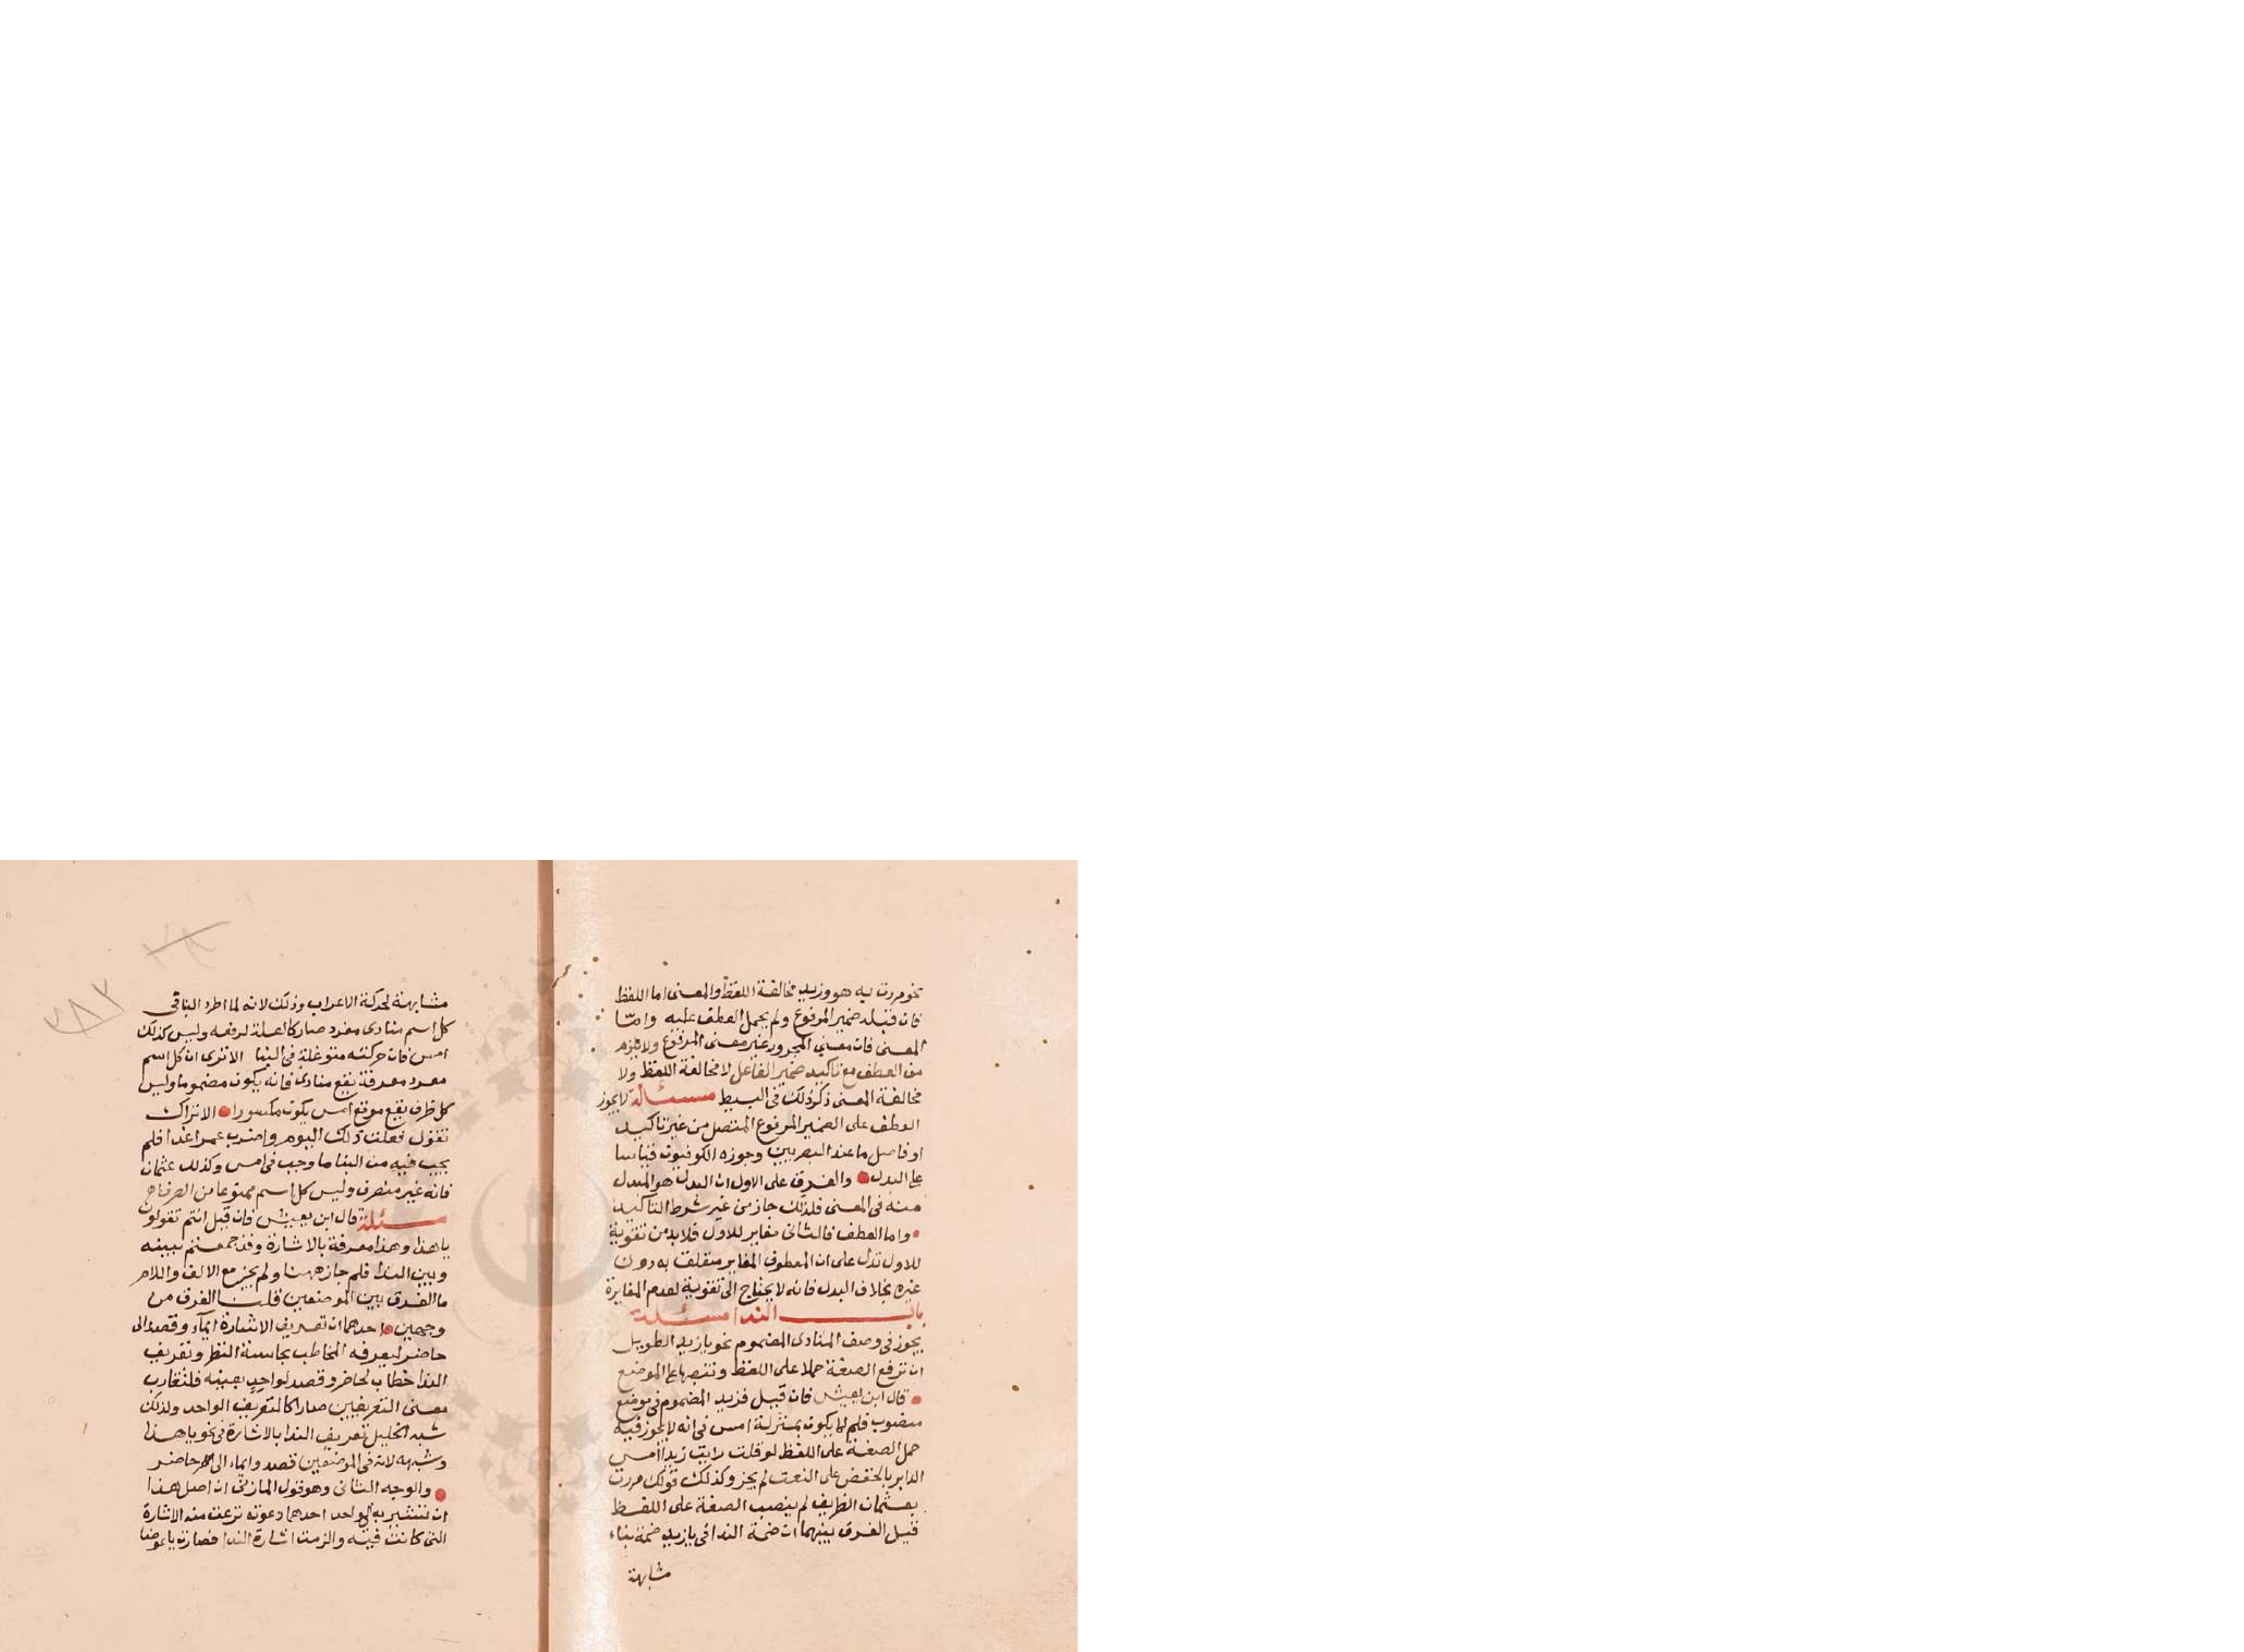 نحو مررت به هو وزيد مخالفة اللفظ والمعنى اما اللفظ
فان قبله ضمير المرفوع ولم يحمل العطف عليه وامّا
المعنى فان معنى المجرور غير معنى المرفوع ولا يلزم
من العطف مع تاكيد ضمير الفاعل لا مخالفة اللفظ ولا
مخالفة المعنى ذكر ذلك فى البسيط مسئالة لا يجوز
العطف على الضمير المرفوع المتصل من غير تاكيد
او فاصل ما عند البصريين وجوزه الكوفيون قياسا
على البدل والفرق على الاول ان البدل هو المبدل
منه فى المعنى فلذلك جاز من غير شرط التاكيد
واما العطف فالثانى مغاير للاول فلا بد من تقوية
للاول تدل على ان المعطوف المغاير متعلق به دون
غيره بخلاف البدل فانه لا يحتاج الى تقوية لعدم المغايرة
باب الندا مسئلة
يجوز فى وصف المنادى المضموم نحو يا زيد الطويل
ان ترفع الصفة حملا على اللفظ وتنصبها على الموضع
قال ابن يعيش فان قيل فزيد المضموم فى موضع
منصوب فلم لا يكون بمنزلة امس فى انه لا يجوز فيه
حمل الصفة على اللفظ لو قلت رايت زيدا امس
الدابر بالخفض على النعت لم يجز وكذلك قولك مررت
بعثمان الظريف لم ينصب الصفة على اللفظ
قيل الفرق بينهما ان ضمة الندا فى يا زيد ضمة بناء
مشابهة
مشابهة لحركة الاعراب وذلك لانه لما اطرد البنا فى
كل اسم منادى مفرد صار كالعلة لرفعه وليس كذلك
امس فان حركته متوغلة فى البنا الا ترى ان كل اسم
مفرد معرفة يقع منادى فانه يكون مضموما وليس
كل ظرف يقع موقع امس يكون مكسورا الا تراك
تقول فعلت ذلك اليوم واضرب عمرا غدا فلم
يجب فيه من البنا ما وجب فى امس وكذلك عثمان
فانه غير منصرف وليس كل اسم ممنوعا من الصرف
مسئلة قال ابن يعيش فان قيل انتم تقولون
يا هذا وهذا معرفة بالاشارة وقد جمعتم بينه
وبين الندا فلم جاز ههنا ولم يجز مع الالف واللام
ما الفرق بين الموضعين قلنا الفرق من
وجهين احدهما ان تعريف الاشارة ايماء وقصد الى
حاضر ليعرفه المخاطب بحاسة النظر وتعريف
الندا خطاب لحاضر وقصد لواحد بعينه فلتقارب
معنى التعريفين صارا كالتعريف الواحد ولذلك
شبه الخليل تعريف الندا بالاشارة فى نحو يا هذا
وشبهه لانه فى الموضعين قصد وايماء الى حاضر
والوجه الثانى وهو قول المازنى ان اصل هذا
ان تشير به لواحد احدها دعوته نزعت منه الاشارة
التى كانت فيه والزمت اشارة الندا فصارت يا عوضا